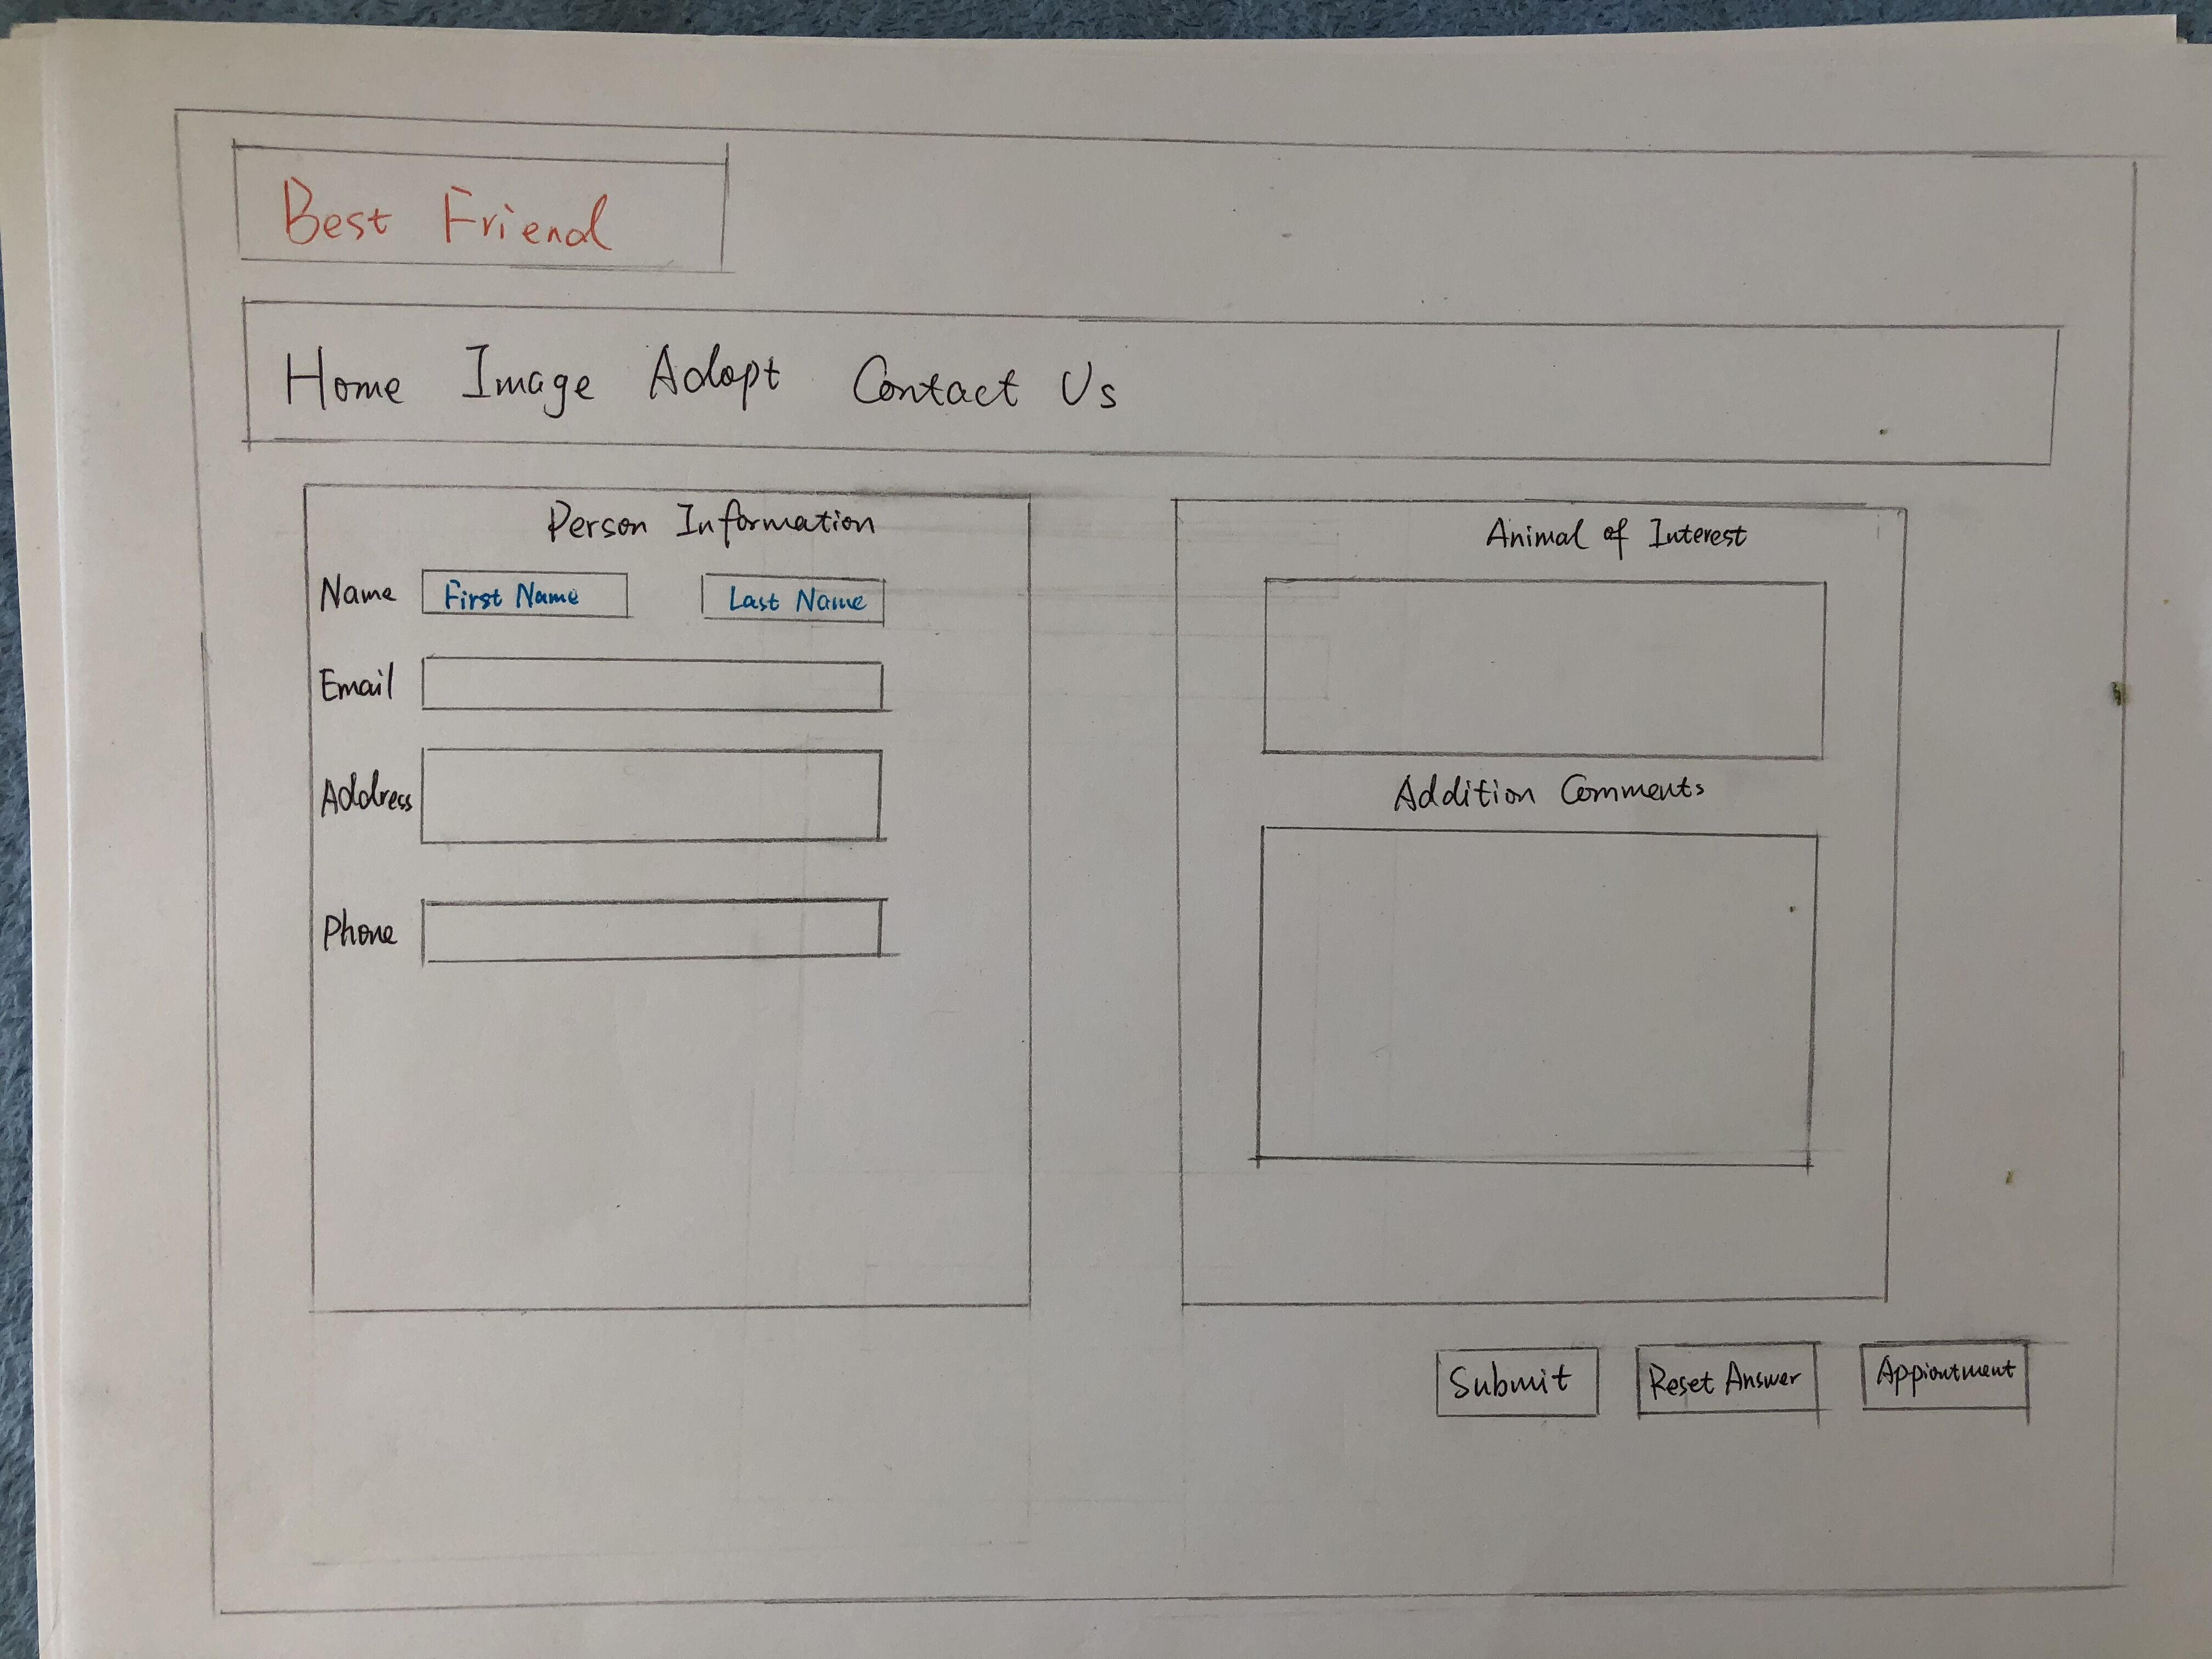 Best Friend
Home Image Adopt Contact Us
Person Information
Name First Name Last Name
Email
Address
Phone
Animal of Interest
Addition Comments
Submit Reset Answer Appiontment